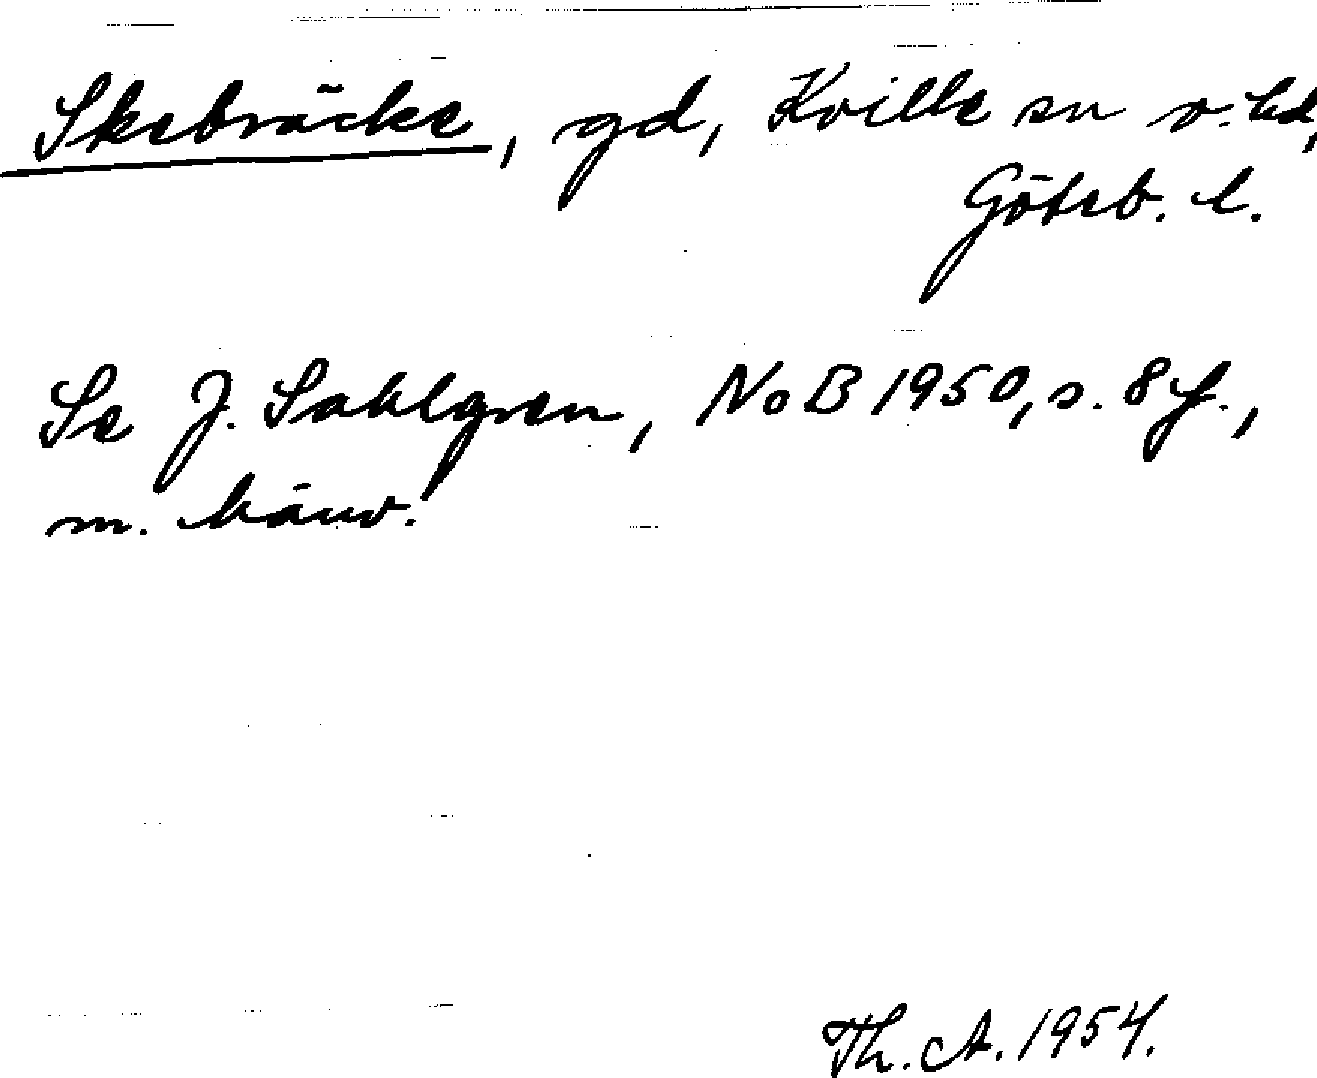 Skebräcke, gd, Kville sn o. hd,
Göteb. l.
Se J. Sahlgren, NoB 1950, s. 8 f.,
m. hänv.
Th. A. 1954.